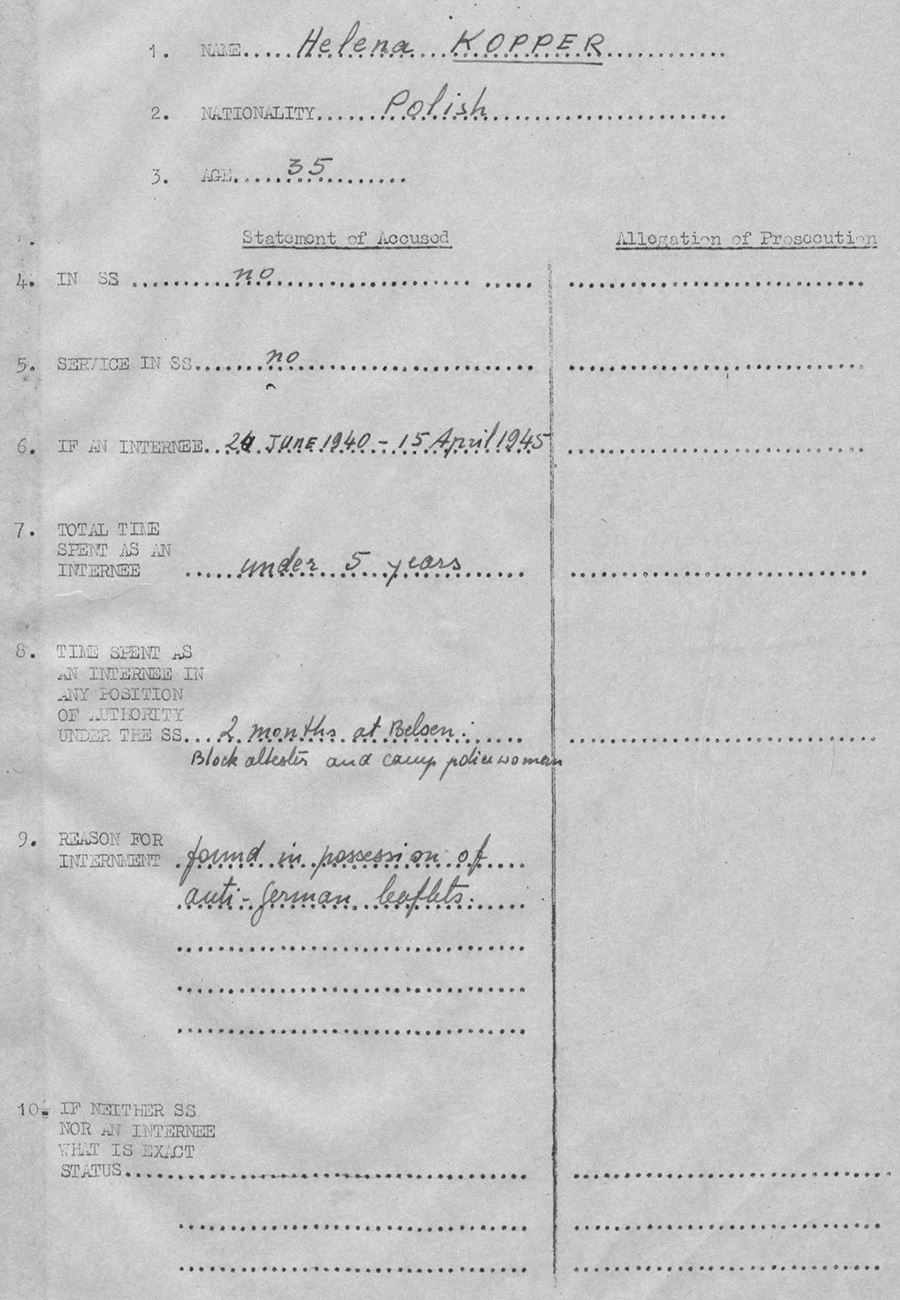 1. NAME.....Helena KOPPER............
2. NATIONALITY......Polish.......................
3. AGE.....35.........
Statement of Accused Allegation of Prosecution
4. IN SS ..........no.......................... ..... ..............................
5. SERVICE IN SS.......no........................ ..............................
6. IF AN INTERNEE..24 JUNE 1940 - 15 April 1945 ..............................
7. TOTAL TIME
SPENT AS AN
INTERNEE .....under 5 years...... ..............................
8. TIME SPENT AS
AN INTERNEE IN
ANY POSITION
OF AUTHORITY
UNDER THE SS...2 months at Belsen:..... ..............................
Block altester and camp policewoman
9. REASON FOR
INTERNMENT .found in possession of....
anti-German leaflets......
10. IF NEITHER SS
NOR AN INTERNEE
WHAT IS EXACT
STATUS........................................ ..............................